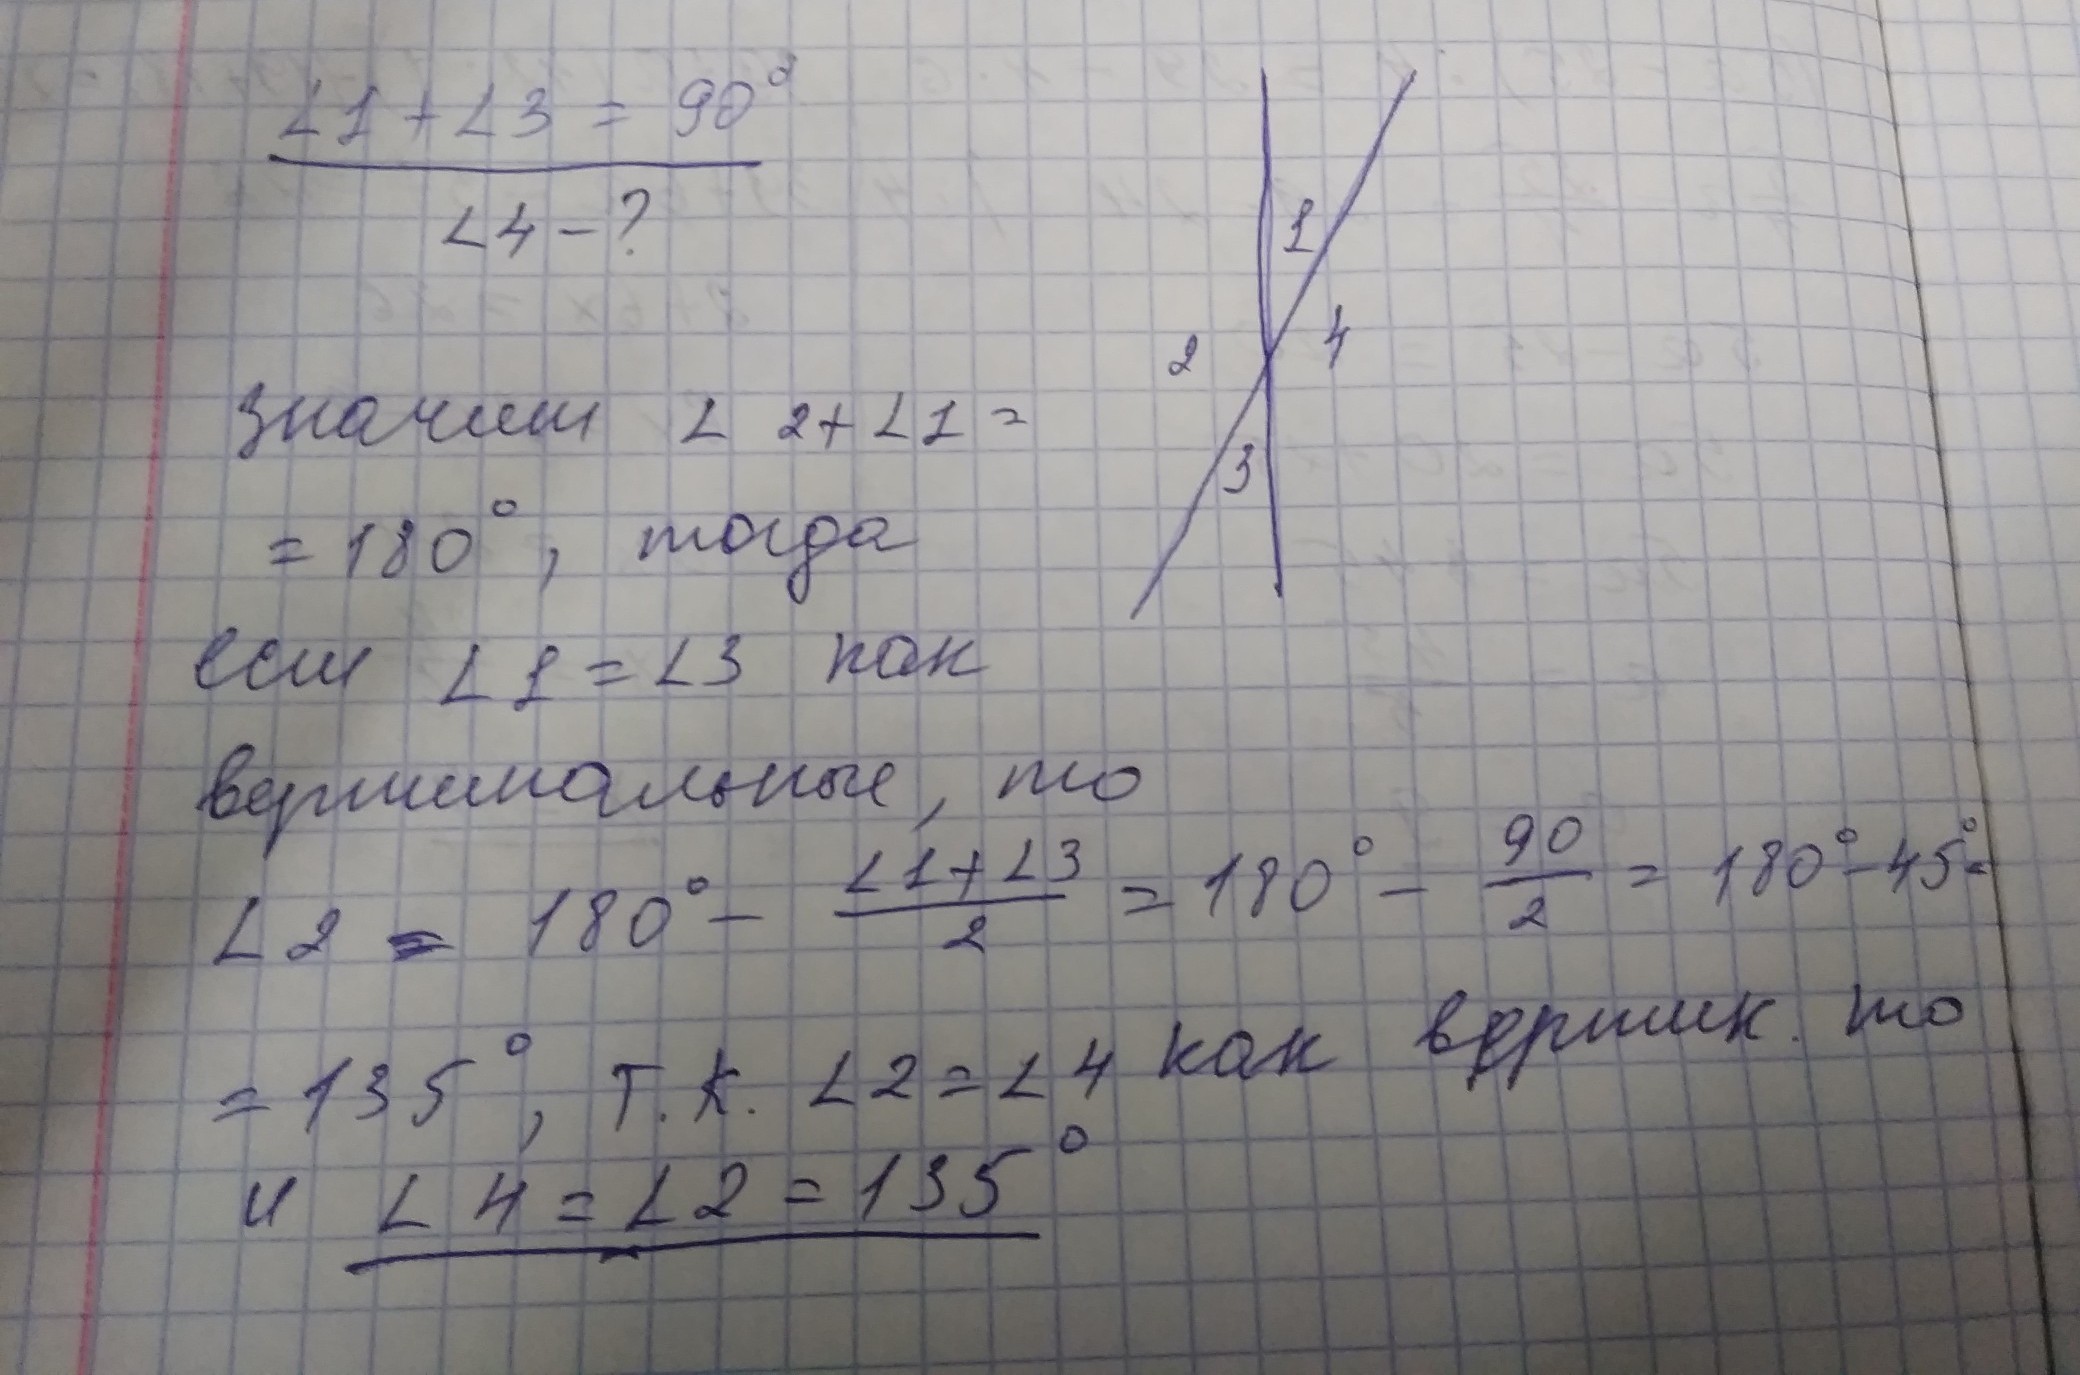 ∠1 + ∠3 = 90°
∠4 - ?
1
2
4
3
значит ∠2 + ∠1 =
= 180°, тогда
если ∠1 = ∠3 как
вертикальные, то
∠2 = 180° - (∠1 + ∠3)/2 = 180° - 90/2 = 180° - 45° =
= 135°, т.к. ∠2 = ∠4 как вертик. то
и ∠4 = ∠2 = 135°